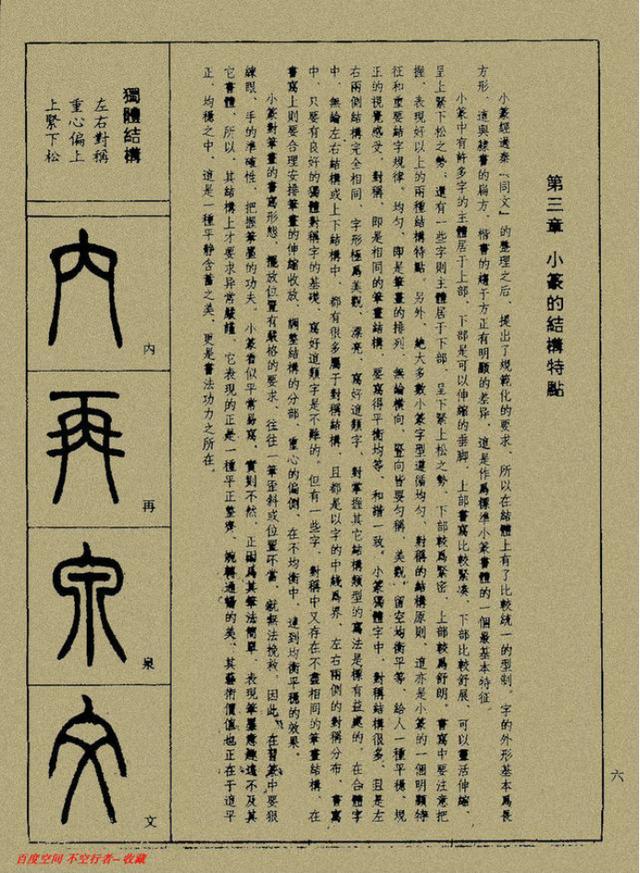 第三章 小篆的結構特點
小篆經過秦「同文」的整理之后、提出了規範化的要求、所以在結體上有了比較統一的型制。字的外形基本爲長
方形、這與隸書的扁方、楷書的趨于方正有明顯的差异、這是作爲標準小篆書體的一個最基本特征。
小篆中有許多字的主體居于上部、下部是可以伸縮的垂脚、上部書寫比較緊凑、下部比較舒展、可以靈活伸縮、
呈上緊下松之勢；還有一些字則主體居于下部、呈下緊上松之勢、下部較爲緊密、上部較爲舒朗。書寫中要注意把
握、表現好以上的兩種結構特點。另外、絶大多數小篆字型遵循均勻、對稱的結構原則、這亦是小篆的一個明顯特
征和重要結字規律。均勻、即是筆畫的排列、無論横向、竪向皆要勻稱、美觀、留空均衡平等、給人一種平穩、規
正的視覺感受。對稱、即是相同的筆畫結構、要寫得平衡均等、和諧一致。小篆獨體字中、對稱結構很多、且是左
右兩側結構完全相同、字形極爲美觀、漂亮、寫好這類字、對掌握其它結構類型的寫法是極有益處的。在合體字
中、無論左右結構或上下結構中、都有很多屬于對稱結構、且都是以字的中綫爲界、左右兩側的對稱分布、書寫
中、只要有良好的獨體對稱字的基礎、寫好這類字是不難的。但有一些字、對稱中又存在不盡相同的筆畫結構、在
書寫上則要合理安排筆畫的伸縮收放、調整結構的分部、重心的偏側、在不均衡中、達到均衡平穩的效果。
小篆對筆畫的書寫形態、擺放位置有嚴格的要求、往往一筆歪斜或位置不當、就無法挽救。因此、在習篆中要狠
練眼、手的準確性、把握筆墨的功夫。小篆看似平常易寫、實則不然、正因爲其筆法簡單、表現筆墨意趣遠不及其
它書體、所以、其結構上才要求异常嚴謹、它表現的正是一種平正整齊、婉轉通暢的美、其藝術價值也正在于這平
正、均穩之中、這是一種平静含蓄之美、更是書法功力之所在。
獨體結構
左右對稱
重心偏上
上緊下松
内
内
再
再
泉
泉
文
文
六
百度空间 不空行者-- 收藏